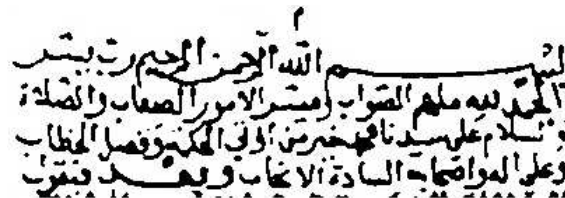 بسم الله الرحمن الرحيم رب يسر
الحمد لله ملهم الصواب وميسر الامور الصعاب والصلاة
والسلام على سيدنا محمد خير من أوتي الحكمة وفصل الخطاب
وعلى اله واصحابه السادة الانجاب وبعد فيقول